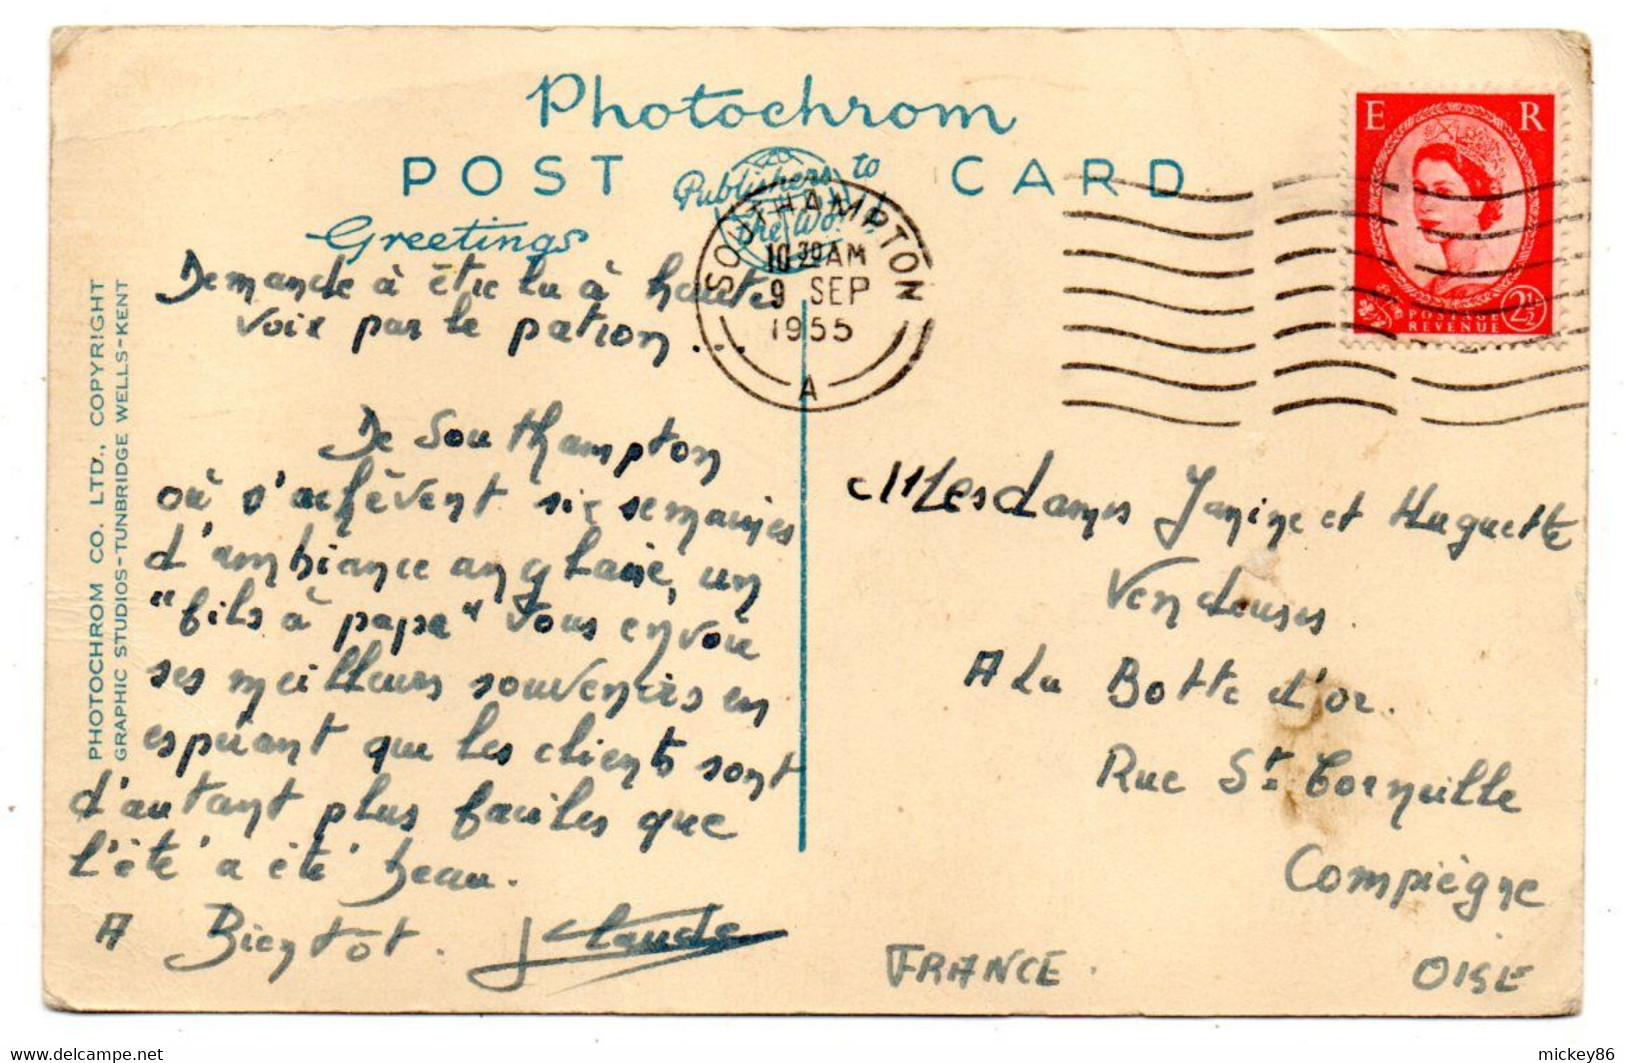 Photochrom
POST CARD
Publishers to
the Wo
Greetings
SOUTHAMPTON
10 30 AM
9 SEP
1955
A
E R
POSTAGE 2½D
REVENUE
PHOTOCHROM CO. LTD., COPYRIGHT
GRAPHIC STUDIOS-TUNBRIDGE WELLS-KENT
Demande à être lu à haute
voix par le patron...
De Southampton
où s'achèvent six semaines
d'ambiance anglaise, un
"fils à papa" vous envoie
ses meilleurs souvenirs en
espérant que les clients sont
d'autant plus faciles que
l'été a été beau.
A Bientot. JClaude
Mesdames Janine et Huguette
Vendeuses.
A La Botte d'or.
Rue St Corneille
Compiègne
FRANCE. OISE
http://www.delcampe.net
mickey86